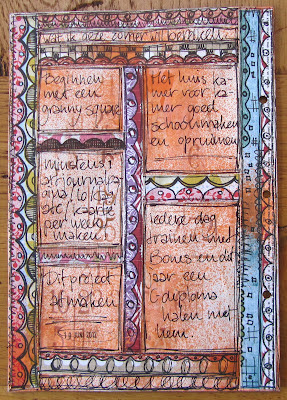 wat ik deze zomer wil bereiken
Beginnen
met een
granny square
minstens 1
artjournalka
per week
maken!
Dit project
afmaken
1 3 JUNI 2012
Het huis ka-
mer voor ka-
mer goed
schoonmaken
en opruimen
iedere dag
trainen met
Bones en dit
jaar een
G diploma
halen met
hem.